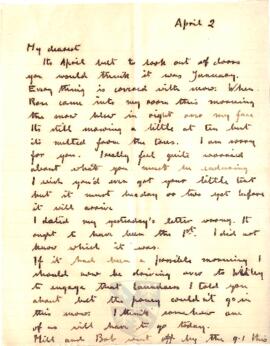 April 2
My dearest
Its April but to look out of doors
you would think it was January.
Every thing is covered with snow. When
Rose came into my room this morning
the snow blew in right over my face
Its still snowing a little at ten but
it's melted from the trees. I am sorry
for you. I really feel quite worried
about what you must be enduring
I wish you'd ever got your little tent
but it must be a day or two yet before
it will arrive
I dated my yesterday's letter wrong. It
ought to have been the 1st. I did not
know which it was.
If it had been a possible morning I
should now be driving over to
to engage that laundress I told you
about but the pony couldn't go in
this snow. I think some one
of us will have to go today.
and Bob went off by the 9.1